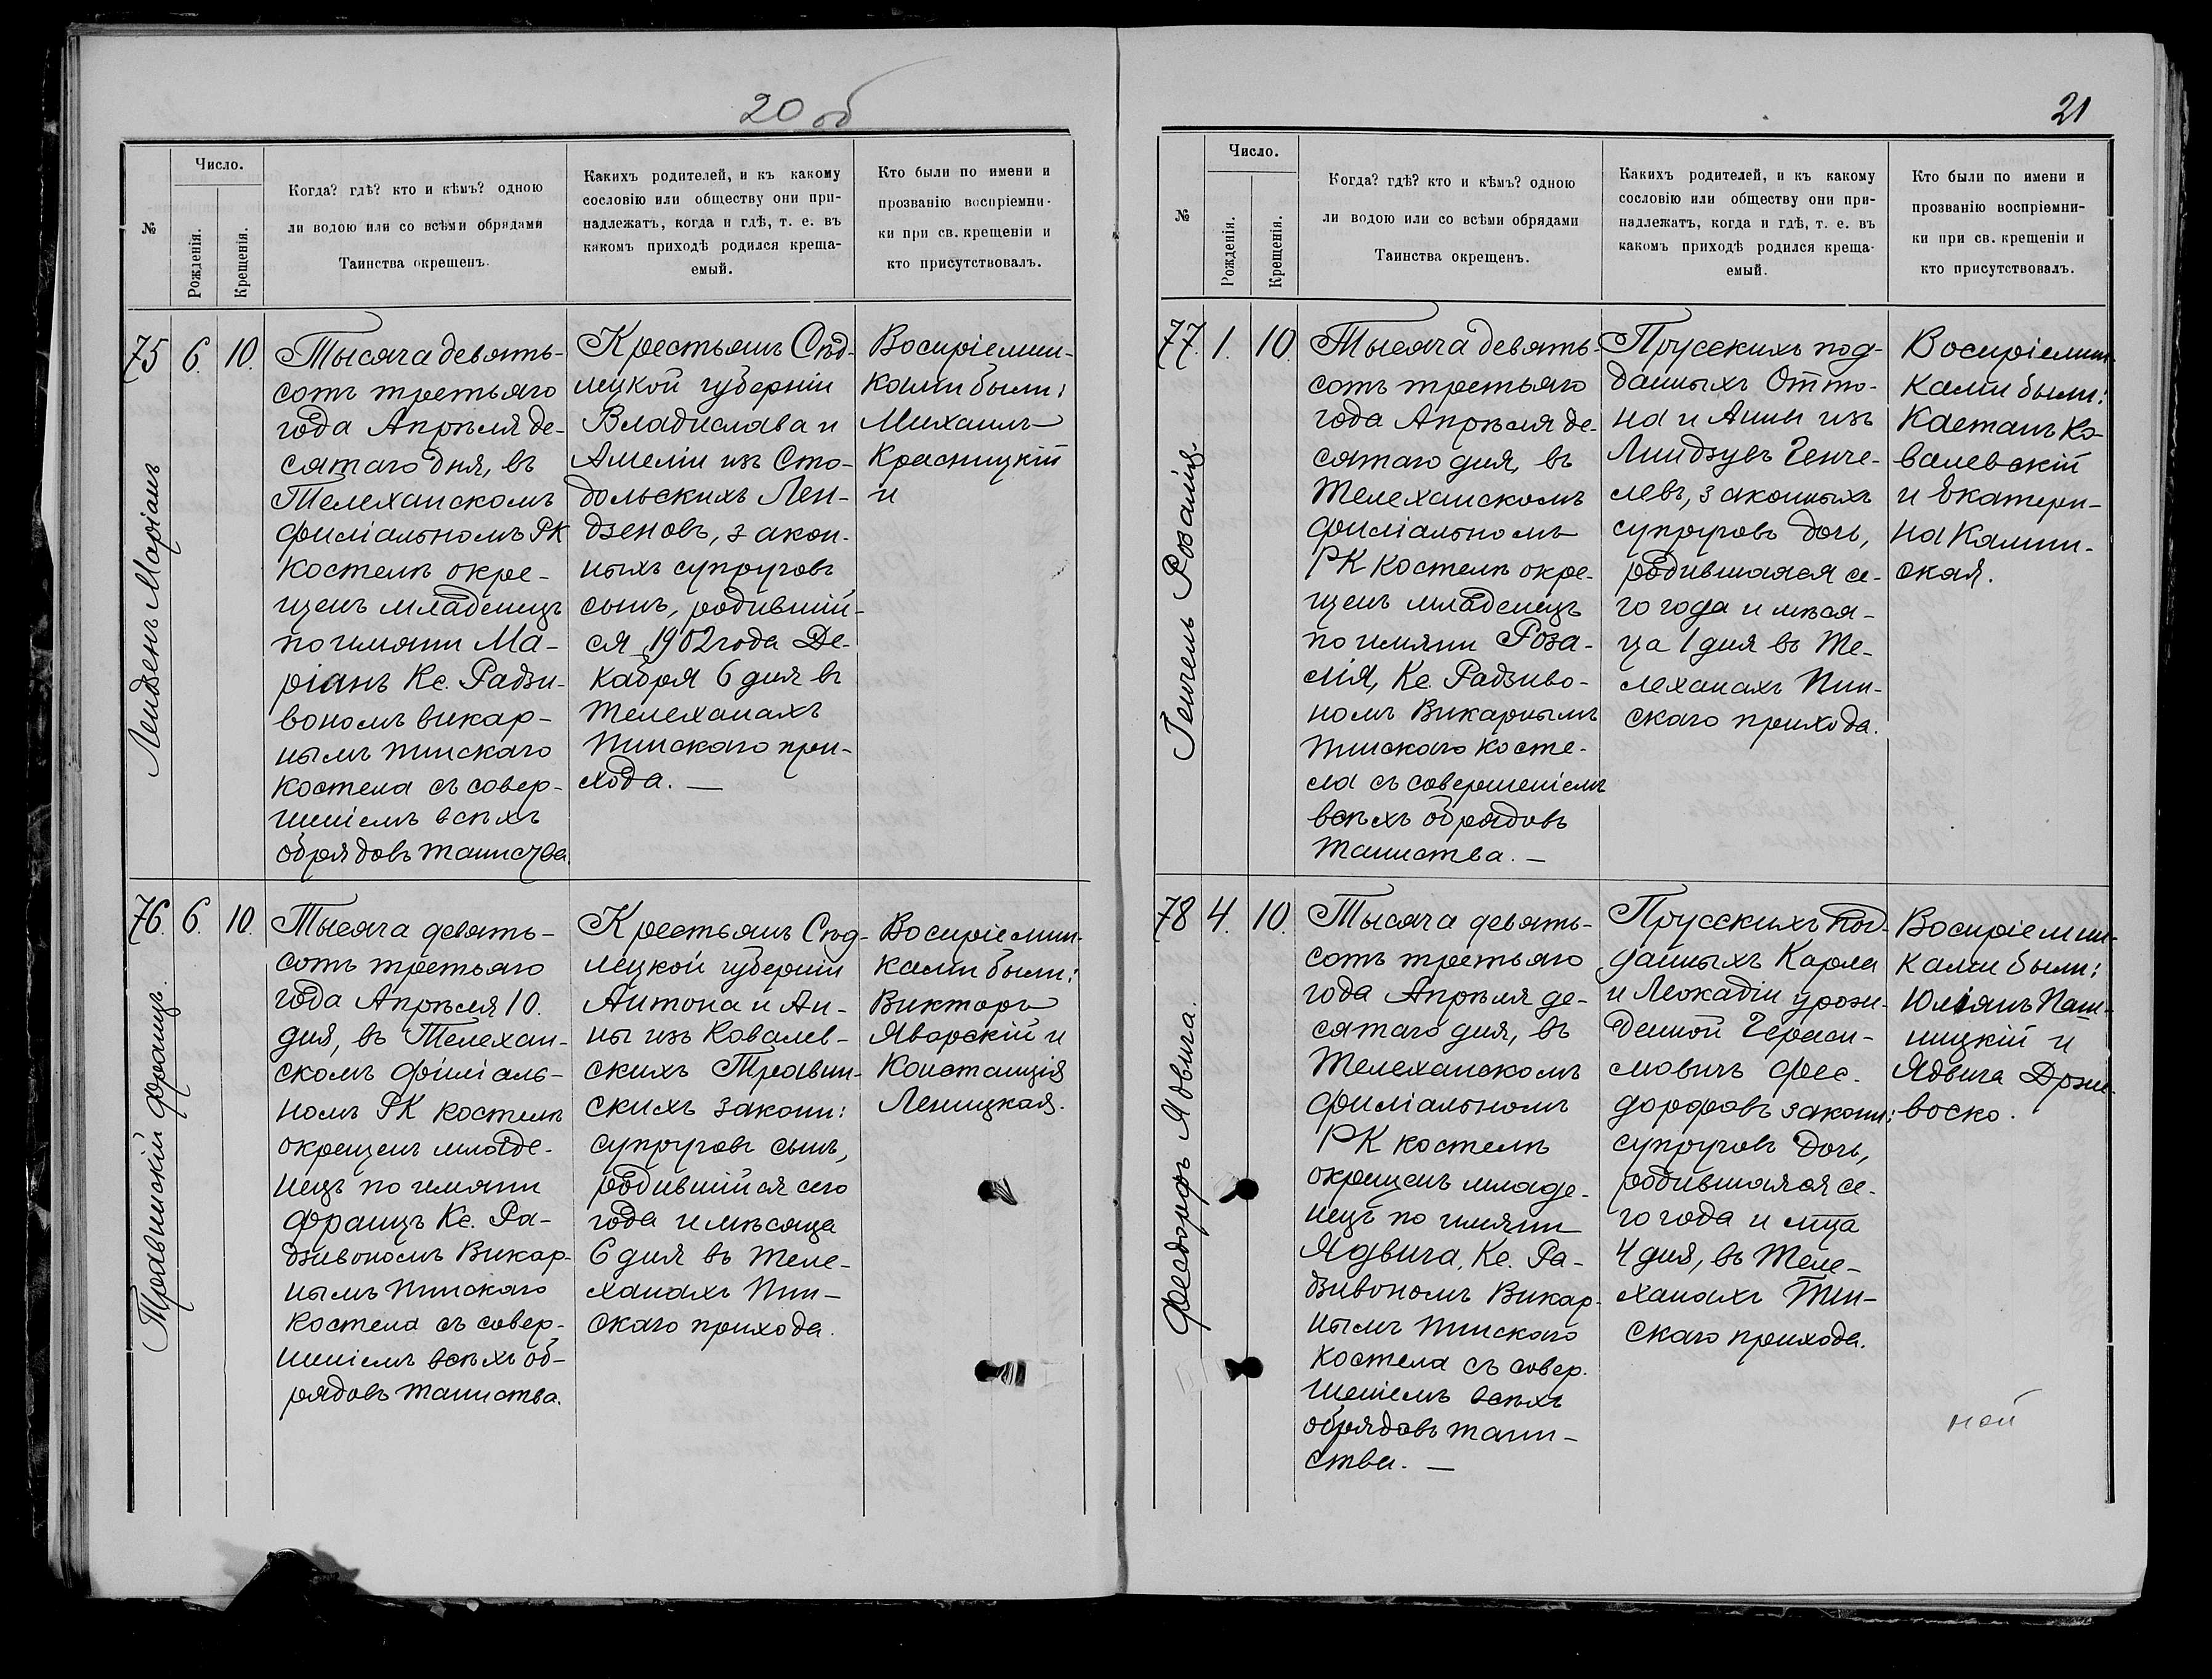 20 об
№
Число.
Рожденія.
Крещенія.
Когда? гдѣ? кто и кѣмъ? одною
ли водою или со всѣми обрядами
Таинства окрещенъ.
Какихъ родителей, и къ какому
сословію или обществу они при-
надлежатъ, когда и гдѣ, т. е. въ
какомъ приходѣ родился креща-
емый.
Кто были по имени и
прозванію воспріемни-
ки при св. крещеніи и
кто присутствовалъ.
75
6.
10.
Лендзенъ Маріанъ
Тысяча девять-
сотъ третьяго
года Апрѣля де-
сятаго дня, въ
Телеханскомъ
филіальномъ РК
костелѣ окре-
щенъ младенецъ
по имяни Ма-
ріанъ Кс. Радзи-
вономъ викар-
нымъ пинскаго
костела съ совер-
шеніемъ всѣхъ
обрядовъ таинства.
Крестьянъ Сѣд-
лецкой губерніи
Владислава и
Амеліи изъ Сто-
дольскихъ Лен-
дзеновъ, закон-
ныхъ супруговъ
сынъ, родившій-
ся 1902 года Де-
кабря 6 дня въ
Телеханахъ
Пинскаго при-
хода. —
Воспріемни-
ками были:
Михаилъ
Красницкій
и
76.
6.
10.
Травинскій Францъ.
Тысяча девять-
сотъ третьяго
года Апрѣля 10.
дня, въ Телехан-
скомъ филіаль-
номъ РК костелѣ
окрещенъ младе-
нецъ по имяни
Францъ Кс. Ра-
дзивономъ Викар-
нымъ Пинскаго
Костела съ совер-
шеніемъ всѣхъ об-
рядовъ таинства.
Крестьянъ Сѣд-
лецкой губерніи
Антона и Ан-
ны изъ Ковалев-
скихъ Травин-
скихъ законн:
супруговъ сынъ,
родившійся сего
года и мѣсяца
6 дня въ Теле-
ханахъ Пин-
скаго прихода.
Воспріемни-
ками были:
Викторъ
Яворскій и
Констанція
Леницкая.
21
№
Число.
Рожденія.
Крещенія.
Когда? гдѣ? кто и кѣмъ? одною
ли водою или со всѣми обрядами
Таинства окрещенъ.
Какихъ родителей, и къ какому
сословію или обществу они при-
надлежатъ, когда и гдѣ, т. е. въ
какомъ приходѣ родился креща-
емый.
Кто были по имени и
прозванію воспріемни-
ки при св. крещеніи и
кто присутствовалъ.
77.
1.
10.
Генчель Розалія.
Тысяча девять-
сотъ третьяго
года Апрѣля де-
сятаго дня, въ
Телеханскомъ
филіальномъ
РК Костелѣ окре-
щенъ младенецъ
по имяни Роза-
лія, Кс. Радзиво-
номъ Викарнымъ
Пинскаго косте-
ла съ совершеніемъ
всѣхъ обрядовъ
таинства. —
Прусскихъ под-
данныхъ Отто-
на и Анны изъ
Линдзувъ Генче-
левъ, законныхъ
супруговъ дочь,
родившаяся се-
го года и мѣся-
ца 1 дня въ Те-
леханахъ Пин-
скаго прихода.
Воспріемни-
ками были:
Каетанъ Ко-
валевскій
и Екатери-
на Калин-
ская.
78
4.
10.
Фесдорфъ Ядвига.
Тысяча девять-
сотъ третьяго
года Апрѣля де-
сятаго дня, въ
Телеханскомъ
филіальномъ
РК костелѣ
окрещенъ младе-
нецъ по имяни
Ядвига, Кс. Ра-
дзивономъ Викар-
нымъ пинскаго
костела съ совер-
шеніемъ всѣхъ
обрядовъ таин-
ства. —
Прусскихъ под-
данныхъ Карла
и Леокадіи урож-
денной Гераси-
мовичъ Фес-
дорфовъ законн:
супруговъ дочь,
родившаяся се-
го года и мца
4 дня, въ Теле-
ханахъ Пин-
скаго прихода.
Воспріемни-
ками были:
Юліянъ
и
Ядвига
ной